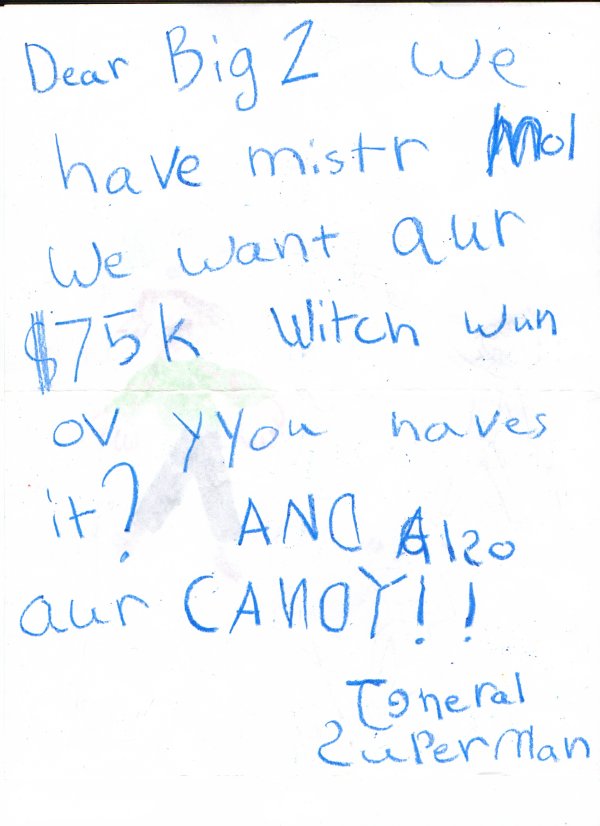 Dear Big Z We
have mistr Mol
We want aur
$75K Witch wun
ov yYou haves
it? AND Also
aur CANDY!!
General
ZuPerMan